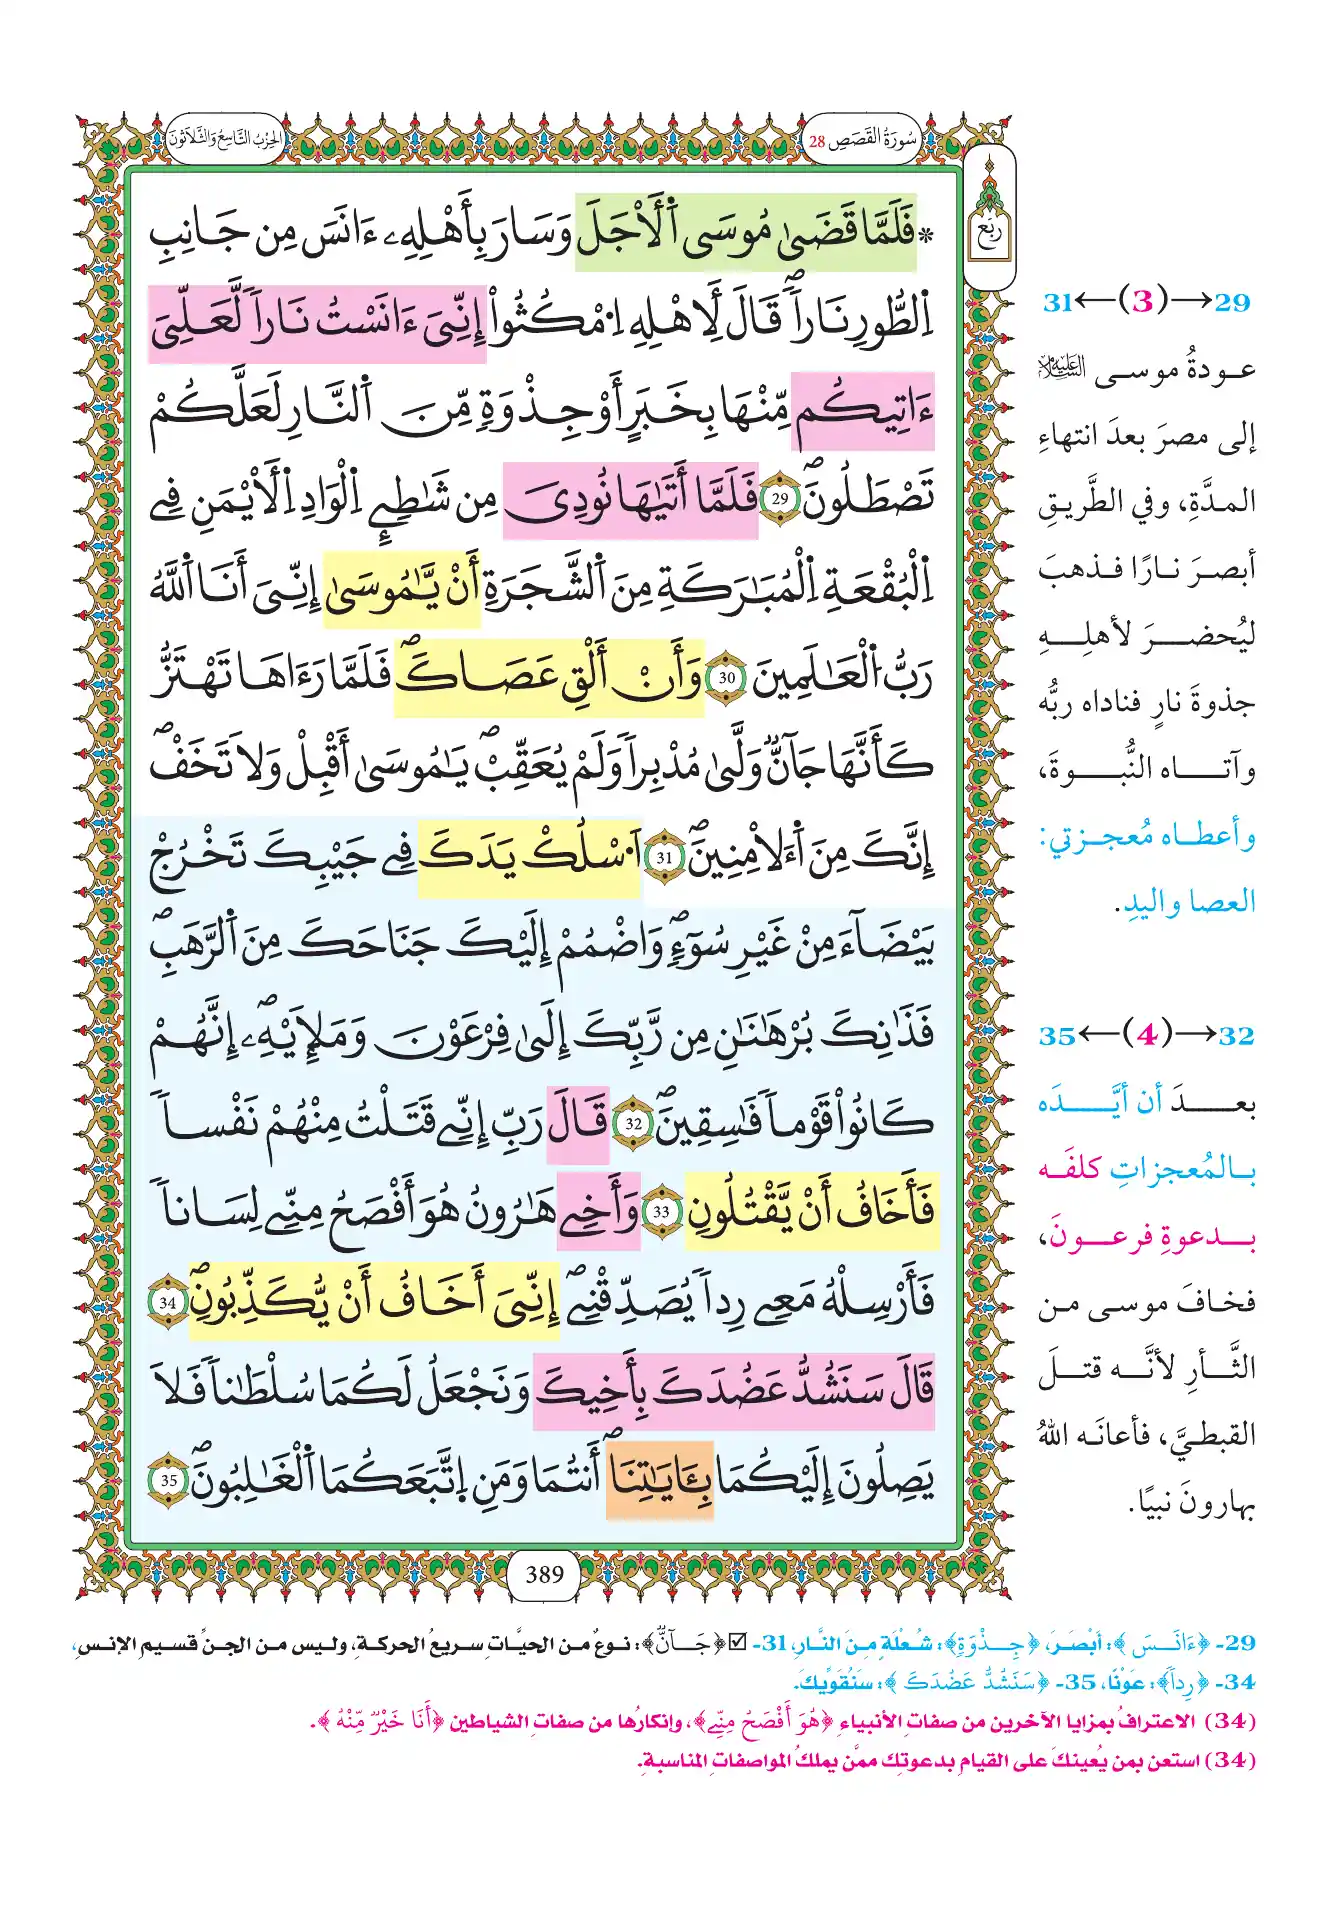 سُورَةُ القَصَصِ 28
الحِزْبُ التَّاسِعُ وَالثَّلَاثُونَ
ربع
* فَلَمَّا قَضَىٰ مُوسَى اَ۬لْأَجَلَ وَسَارَ بِأَهْلِهِۦ ءَانَسَ مِن جَانِبِ
اِ۬لطُّورِ نَاراٗۖ قَالَ لِأَهْلِهِ اِ۟مْكُثُوٓاْ إِنِّيَ ءَانَسْتُ نَاراٗ لَّعَلِّيَ
ءَاتِيكُم مِّنْهَا بِخَبَرٍ أَوْ جِذْوَةٖ مِّنَ اَ۬لنَّارِ لَعَلَّكُمْ
تَصْطَلُونَۖ 29 فَلَمَّا أَتَىٰهَا نُودِيَ مِن شَٰطِےِٕ اِ۬لْوَادِ اِ۬لْأَيْمَنِ فِے
اِ۬لْبُقْعَةِ اِ۬لْمُبَٰرَكَةِ مِنَ اَ۬لشَّجَرَةِ أَنْ يَّٰمُوسَىٰ إِنِّيَ أَنَا اَ۬للَّهُ
رَبُّ اُ۬لْعَٰلَمِينَ 30 وَأَنْ أَلْقِ عَصَاكَۖ فَلَمَّا رَءَاهَا تَهْتَزُّ
كَأَنَّهَا جَآنّٞ وَلَّىٰ مُدْبِراٗ وَلَمْ يُعَقِّبْۖ يَٰمُوسَىٰ أَقْبِلْ وَلَا تَخَفْۖ
إِنَّكَ مِنَ اَ۬لْأٓمِنِينَۖ 31 اَ۟سْلُكْ يَدَكَ فِے جَيْبِكَ تَخْرُجْ
بَيْضَآءَ مِنْ غَيْرِ سُوٓءٖۖ وَاضْمُمْ إِلَيْكَ جَنَاحَكَ مِنَ اَ۬لرَّهَبِۖ
فَذَٰنِكَ بُرْهَٰنَٰنِ مِن رَّبِّكَ إِلَىٰ فِرْعَوْنَ وَمَلَإِيْهِۦۖ إِنَّهُمْ
كَانُواْ قَوْماٗ فَٰسِقِينَۖ 32 قَالَ رَبِّ إِنِّے قَتَلْتُ مِنْهُمْ نَفْساٗ
فَأَخَافُ أَنْ يَّقْتُلُونِ 33 وَأَخِے هَٰرُونُ هُوَ أَفْصَحُ مِنِّے لِسَاناٗ
فَأَرْسِلْهُ مَعِے رِداٗ يُصَدِّقْنِےۖ إِنِّيَ أَخَافُ أَنْ يُّكَذِّبُونِۖ 34
قَالَ سَنَشُدُّ عَضُدَكَ بِأَخِيكَ وَنَجْعَلُ لَكُمَا سُلْطَٰناٗ فَلَا
يَصِلُونَ إِلَيْكُمَا بِـَٔايَٰتِنَاۖ أَنتُمَا وَمَنِ اِ۪تَّبَعَكُمَا اَ۬لْغَٰلِبُونَۖ 35
389
29→(3)←31
عودةُ موسى عليه السلام
إلى مصرَ بعدَ انتهاءِ
المدَّةِ، وفي الطَّريقِ
أبصرَ نارًا فذهبَ
ليُحضرَ لأهلِهِ
جذوةَ نارٍ فناداه ربُّه
وآتاه النُّبوةَ،
وأعطاه مُعجزتي:
العصا واليدِ.
32→(4)←35
بعدَ أن أيَّدَه
بالمُعجزاتِ كلفَه
بدعوةِ فرعونَ،
فخافَ موسى من
الثَّأرِ لأنَّه قتلَ
القبطيَّ، فأعانَه اللهُ
بهارونَ نبيًا.
29- ﴿ءَانَسَ﴾: أَبْصَرَ، ﴿جِذْوَةٖ﴾: شُعْلَةٍ مِنَ النَّارِ، 31- ☑ ﴿جَآنّٞ﴾: نوعٌ من الحيَّاتِ سريعُ الحركةِ، وليس من الجنِّ قسيمِ الإنسِ،
34- ﴿رِداٗ﴾: عَوْنًا، 35- ﴿سَنَشُدُّ عَضُدَكَ﴾: سَنُقَوِّيكَ.
(34) الاعترافُ بمزايا الآخرين من صفاتِ الأنبياءِ ﴿هُوَ أَفْصَحُ مِنِّے﴾، وإنكارُها من صفاتِ الشياطين ﴿أَنَا خَيْرٞ مِّنْهُ﴾.
(34) استعن بمن يُعينكَ على القيامِ بدعوتِك ممَّن يملكُ المواصفاتِ المناسبةِ.